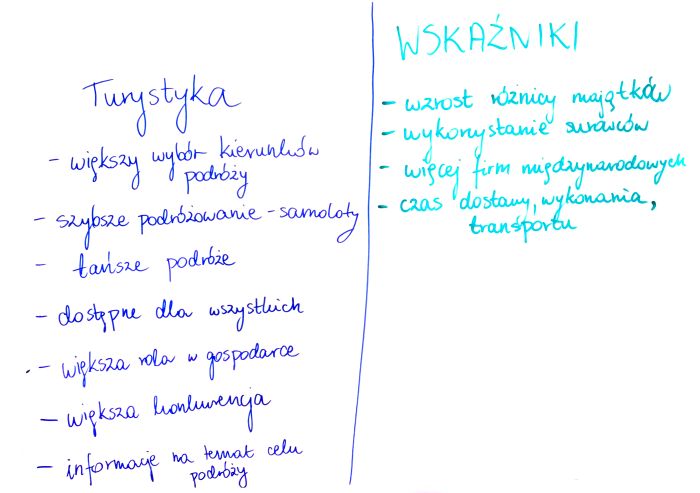 Turystyka
- większy wybór kierunków
podróży
- szybsze podróżowanie - samoloty
- tańsze podróże
- dostępne dla wszystkich
- większa rola w gospodarce
- większa konkurencja
- informacje na temat celu
podróży
WSKAŹNIKI
- wzrost różnicy majątków
- wykorzystanie surowców
- więcej firm międzynarodowych
- czas dostawy, wykonania,
transportu